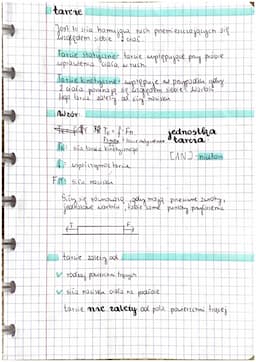 tarcie
Jest to siła hamująca ruch przemieszczających się
względem siebie 2 ciał.
Tarcie statyczne- tarcie występujące przy próbie
wprawienia ciała w ruch.
Tarcie kinetyczne- występuje w przypadku gdy
2 ciała poruszają się względem siebie.
tarcia zależy od siły nacisku
Wzór:
T = f · Fn
jednostka
tarcia
siła tarcia kinetycznego
[1N]- niuton
f: współczynnik tarcia
Fn: siła nacisku
Siły się równoważą gdy mają przeciwne zwroty,
jednakowe wartości, takie same punkty przyłożenia
tarcie zależy od
✓ rodzaj powierzchni trących
✓ siła nacisku ciała na podłoże
tarcie nie zależy od pola powierzchni trącej